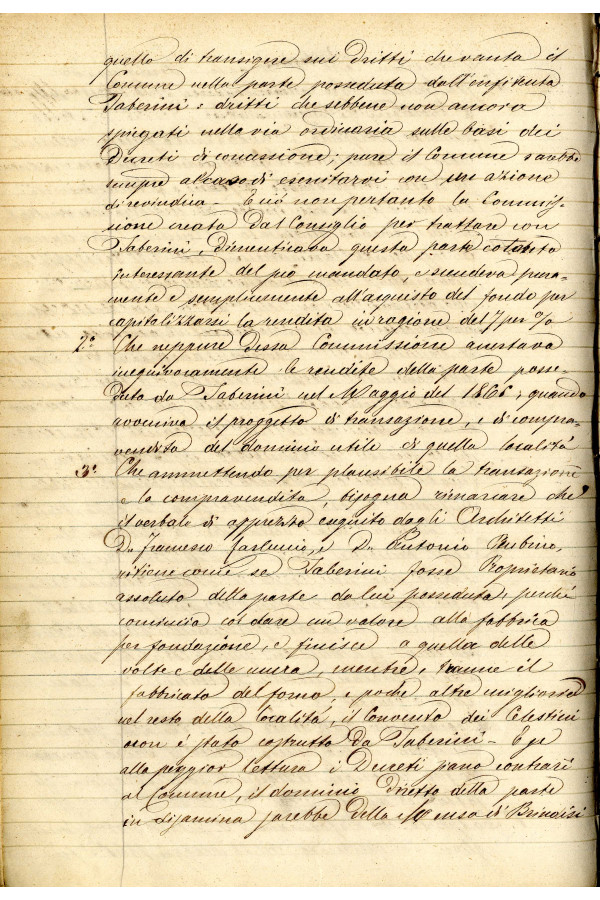 quello di transigere sui dritti che vanta il
Comune nella parte posseduta dall'enfiteuta
Taberini: dritti che sebbene non ancora
spiegati nella via ordinaria sulle basi dei
Decreti di concessione; pure il Comune sarebbe
sempre al caso di esercitarvi con un azione
di revindica - E ciò non pertanto la Commis-
sione creata dal Consiglio per trattare con
Taberini, dimenticava questa parte cotanto
interessante del più mandato, e scendeva pura-
mente e semplicemente all'acquisto del fondo per
capitalizzarsi la rendita in ragione del 7 per %
2.° Che neppure dessa Commissione accertava
inequivocamente le rendite della parte posse-
duta da Taberini nel Maggio del 1866, quando
avveniva il proggetto di transazione, e di compra-
vendita del dominio utile di quella località
3.° Che ammettendo per plausibile la transazione
e la compravendita, bisogna rimarcare che
il verbale di apprezzo eseguito dagli Architetti
D. Francesco e D. Antonio Rubino,
ritiene come se Taberini fosse Proprietario
assoluto della parte da lui posseduta, perché
comincia col dare un valore alla fabbrica
per fondazione, e finisce a quella delle
volte e delle mura, mentre, tranne il
fabbricato del forno, e poche altre migliorie
nel resto della località, il Convento dei Celestini
non é stato costrutto da Taberini - E se
alla peggior lettura i Decreti siano contrarî
al Comune, il dominio diretto della parte
in disamina sarebbe della Mensa di Brindisi